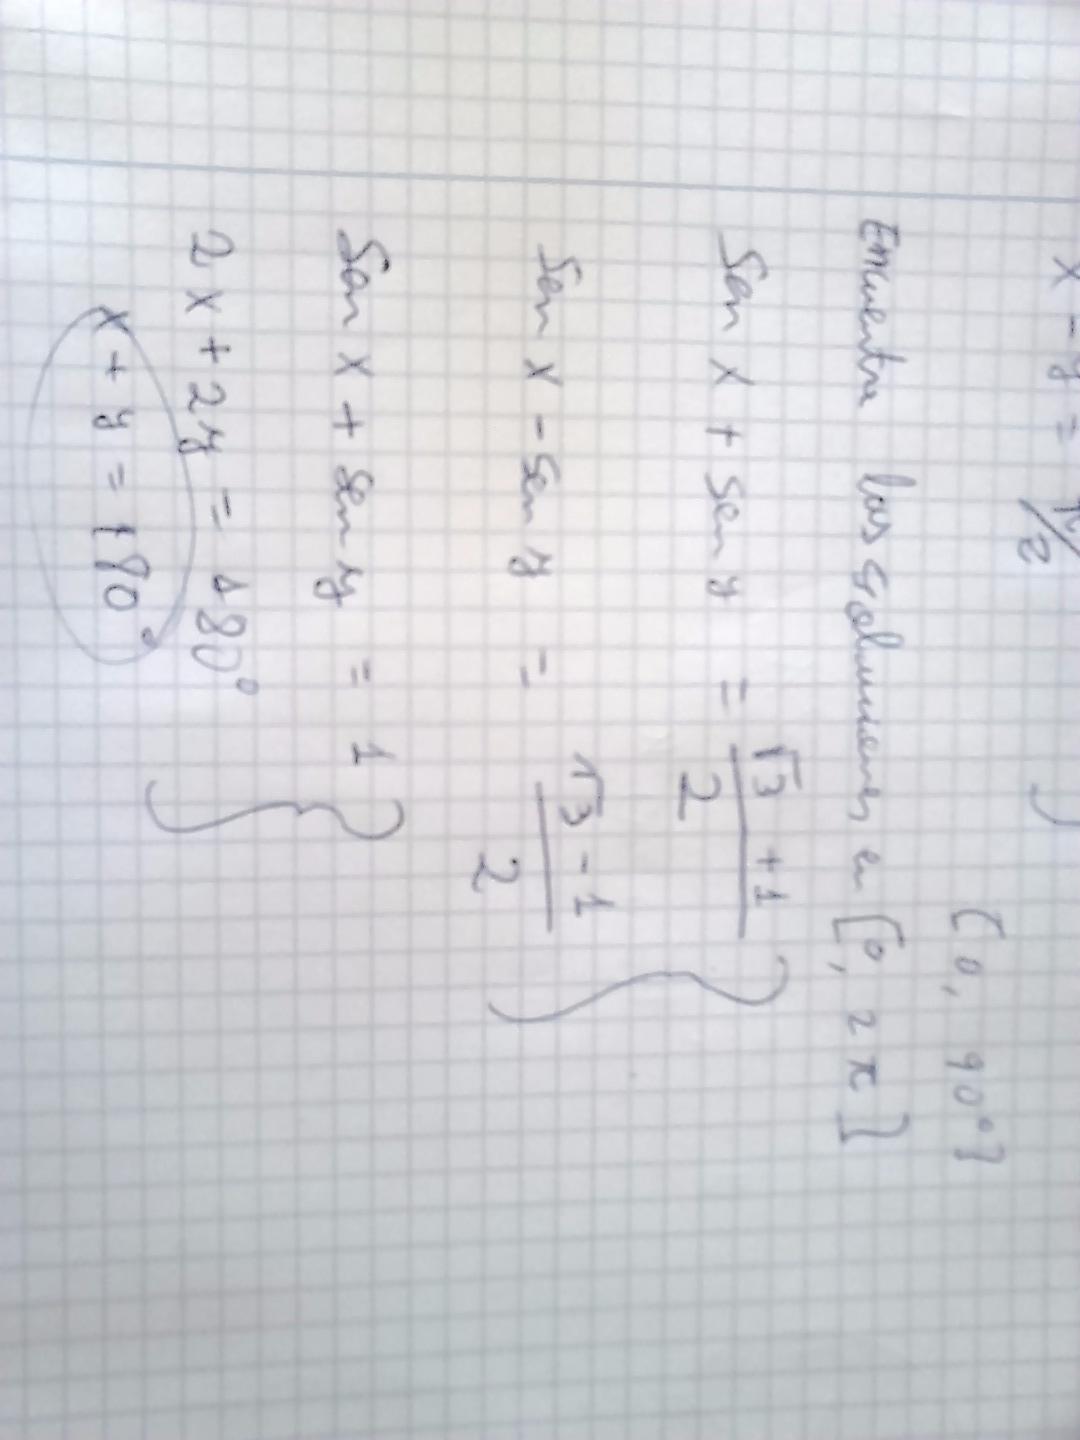 x - y = π/2
[0, 90°]
Encuentra las soluciones en [0, 2π]
Sen x + Sen y = √3 + 1 / 2
Sen x - Sen y = √3 - 1 / 2
Sen x + sen y = 1
2x + 2y = 180°
x + y = 180°